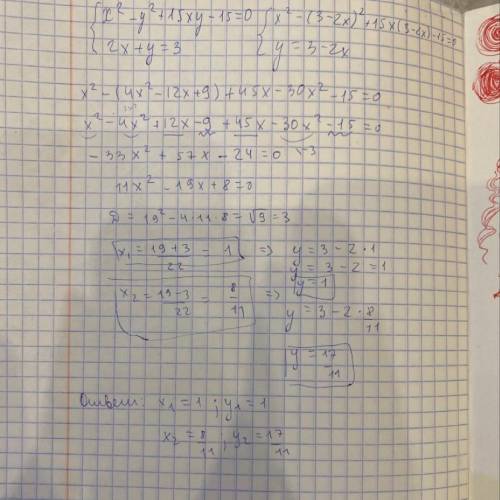 { x² - y² + 15xy - 15 = 0 { x² - (3-2x)² + 15x(3-2x) - 15 = 0
2x + y = 3 y = 3 - 2x
x² - (4x² - 12x + 9) + 45x - 30x² - 15 = 0
x² - 4x² + 12x - 9 + 45x - 30x² - 15 = 0
- 33x² + 57x - 24 = 0
11x² - 19x + 8 = 0
D = 19² - 4·11·8 = √9 = 3
x₁ = (19+3)/22 = 1 => y = 3 - 2·1
y = 3 - 2 = 1
y = 1
x₂ = (19-3)/22 = 8/11 => y = 3 - 2·8/11
y = 17/11
Ответ: x₁ = 1 ; y₁ = 1
x₂ = 8/11 ; y₂ = 17/11